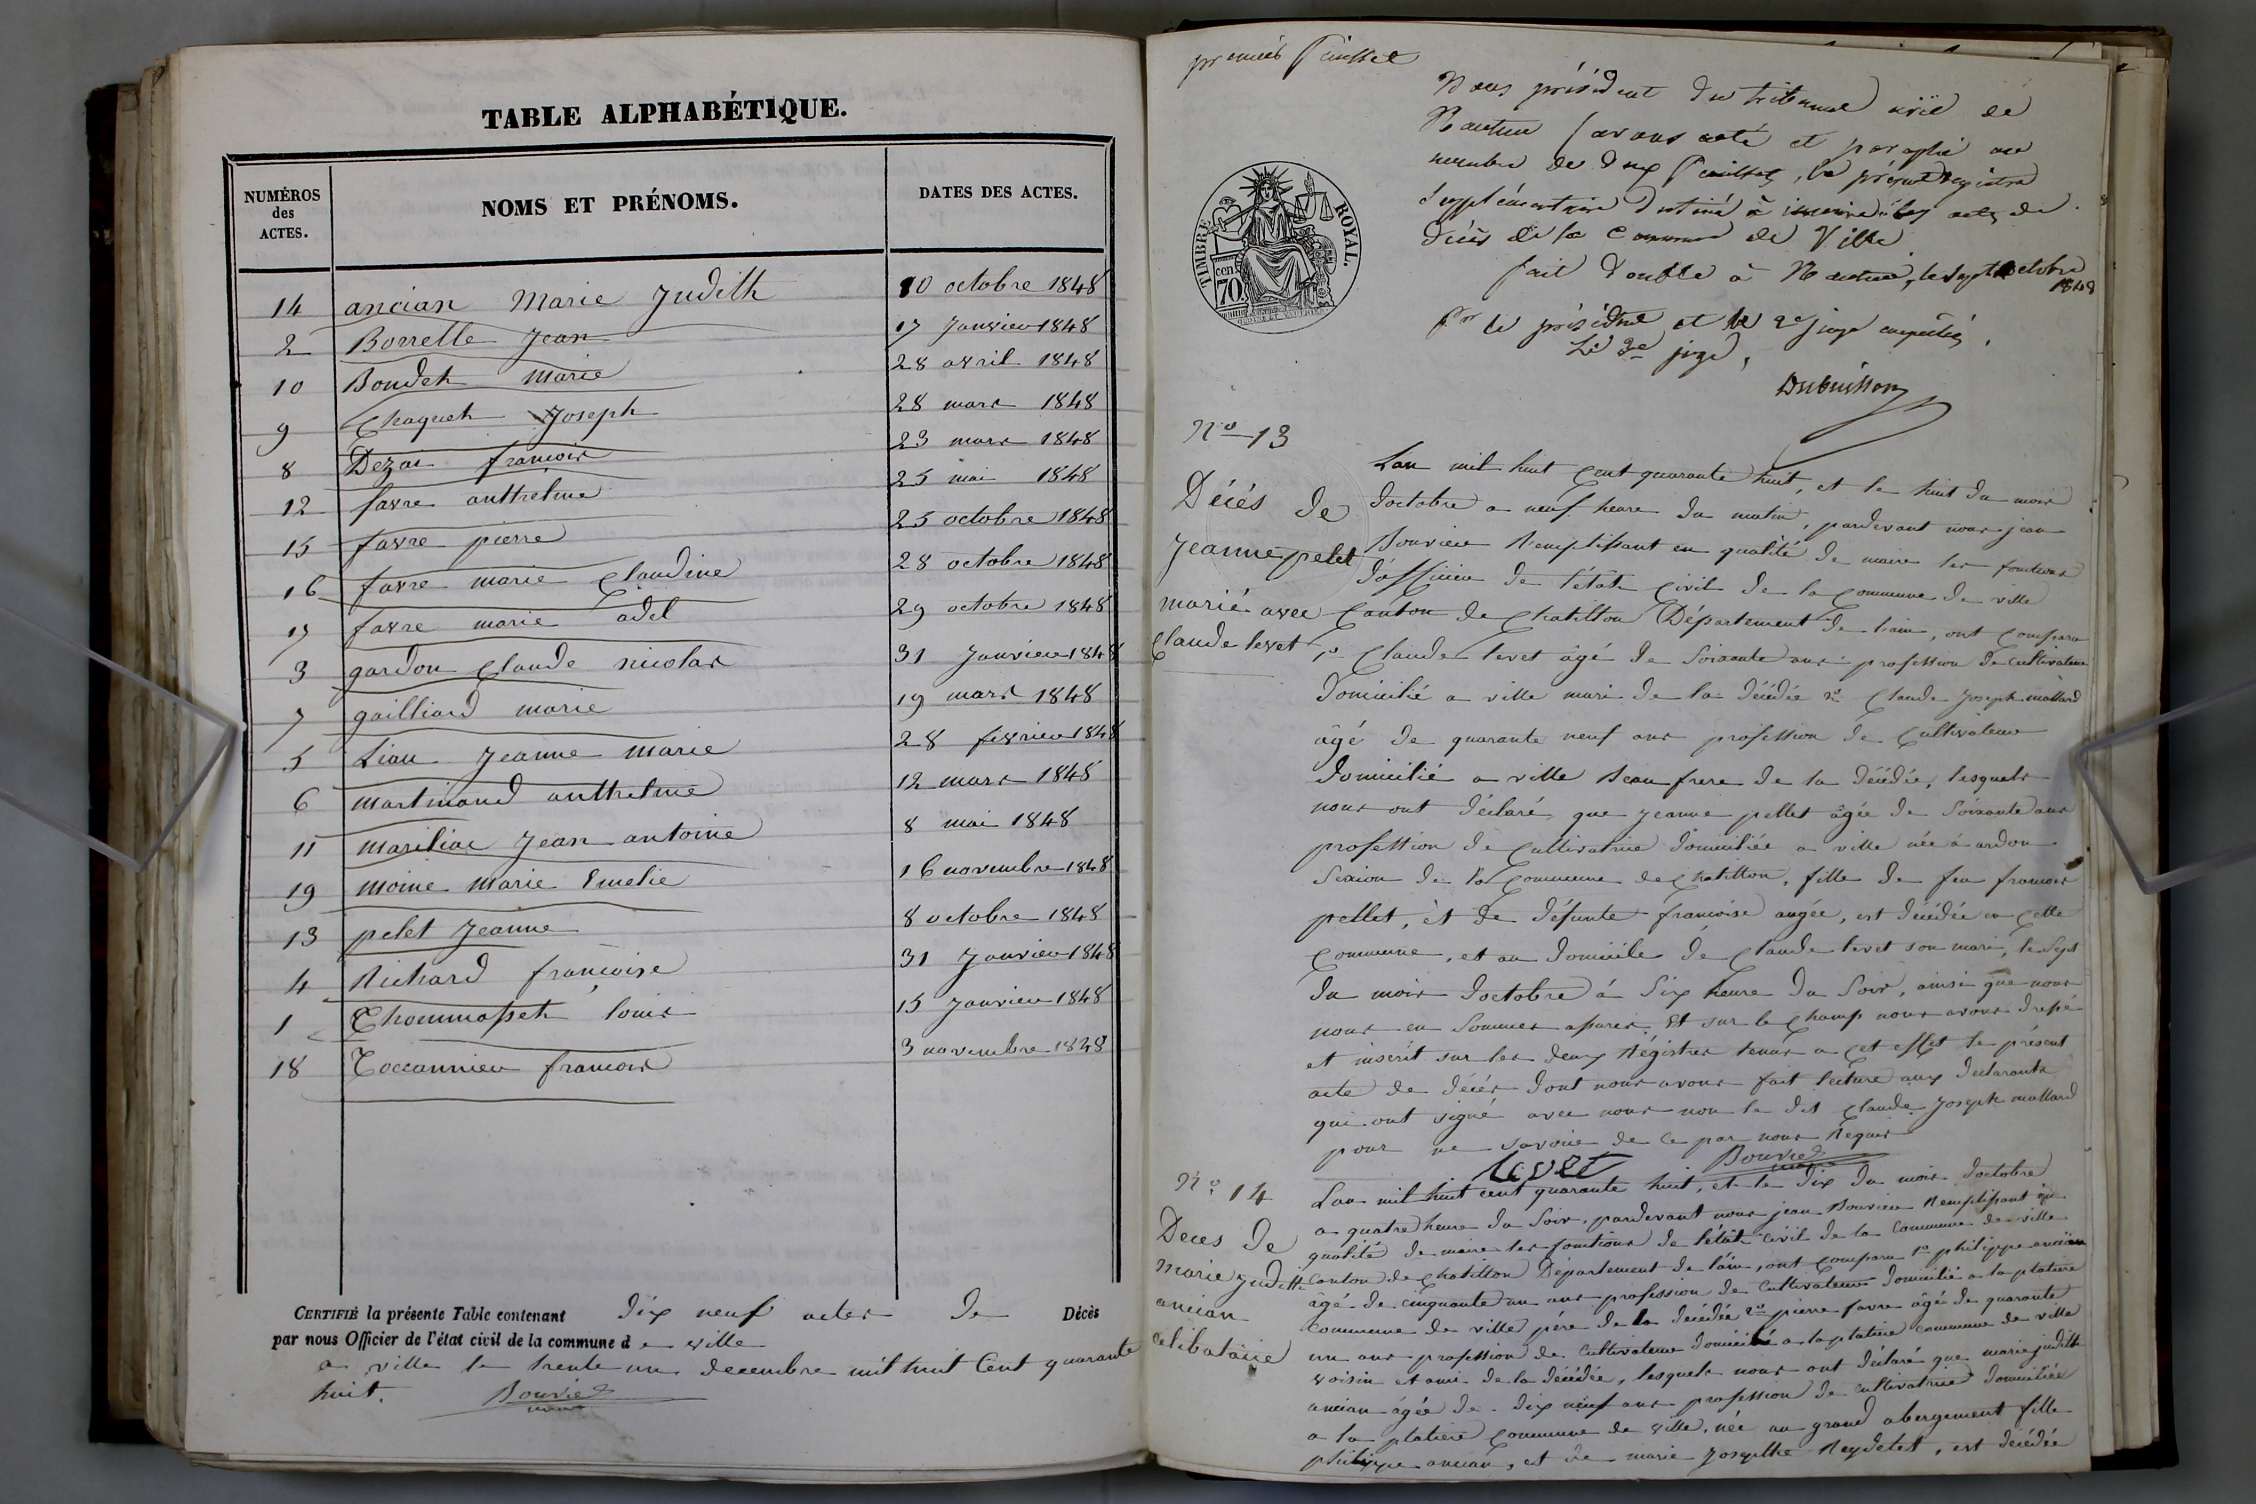 TABLE ALPHABÉTIQUE.
NUMÉROS
des
ACTES.
NOMS ET PRÉNOMS.
DATES DES ACTES.
14 ancian Marie Judith 10 octobre 1848
2 Borrelle Jean 17 Janvier 1848
10 Boudet Marie 28 avril 1848
9 Chaquet Joseph 28 mars 1848
8 Dezai francois 23 mars 1848
12 favre anthelme 25 mai 1848
15 favre pierre 25 octobre 1848
16 favre marie Claudine 28 octobre 1848
17 favre marie adel 29 octobre 1848
3 gardon Claude nicolas 31 Janvier 1848
7 gailliard marie 19 mars 1848
5 Liau Jeanne Marie 28 fevrier 1848
6 martinand anthelme 12 mars 1848
11 mariliac Jean antoine 8 mai 1848
19 moine marie Emelie 16 novembre 1848
13 pelet Jeanne 8 octobre 1848
4 Richard francoise 31 Janvier 1848
1 Thommasset louis 15 Janvier 1848
18 Toccannier francois 3 novembre 1848
CERTIFIÉ la présente Table contenant dix neuf actes de Décès
par nous Officier de l'état civil de la commune de ville
a ville le trente un decembre mil huit Cent quarante
huit. Bouvier
premier feuillet
TIMBRE ROYAL.
70 cen
Nous président du tribunal civil de
Nantua avons coté et paraphé au
nombre de deux feuillets, le présent registre
supplémentaire destiné à inscrire les actes de
décès de la Commune de Ville
fait double à Nantua, le sept octobre
1848
Pr le président et le 2e juge empêchés,
Le 3e juge,
Dubuisson
No 13
Décés de
Jeanne pelet
marié avec
Claude levet
Lan mil huit Cent quarante huit, et le huit du mois
doctobre a neuf heure du matin, pardevant nous jean
Bouvier Remplissant en qualité de maire les fonctions
dofficier de l'état Civil de la Commune de ville
Canton de Chatillon Département de l'ain, ont Comparu
1o Claude levet âgé de Soixante ans profession de Cultivateur
domicilié a ville mari de la décédée 2o Claude Joseph mallard
âgé de quarante neuf ans profession de Cultivateur
domicilié a ville Beau frere de la décédée, lesquels
nous ont déclaré que Jeanne pellet âgée de Soixante ans
profession de Cultivatrice domiciliée a ville née à ardon
Sexion de la Commune de Chatillon, fille de feu francois
pellet, et de défunte francoise augée, est décédée en Cette
Commune, et au domicile de Claude levet son mari, le Sept
du mois doctobre á Six heure du Soir, ainsi que nous
nous en Sommes asures. Et sur le Champ nous avons drapé
et inscrit sur les deux Régistres tenus a Cet effet le présent
acte de décés dont nous avons fait lecture aux declarants
qui ont signé avec nous non le dit Claude Joseph mallard
pour ne savoir de Ce par nous Requis
levet Bouvier
No 14
Deces de
Marie Judith
ancian
celibataire
Lan mil huit cent quarante huit, et le dix du mois doctobre
a quatre heure du Soir, pardevant nous jean Bouvier Remplissant en
qualité de maire les fonctions de l'état Civil de la Commune de ville
Canton de Chatillon Departement de l'ain, ont Comparu 1o philippe ancian
âgé de cinquante un ans profession de Cultivateur domicilié a la platiere
Commune de ville père de la décédée 2o pierre favre âgé de quarante
un ans profession de Cultivateur domicilié a la platiere Commune de ville
voisin et ami de la décédée, lesquels nous ont déclaré que marie judith
ancian âgée de dix neuf ans profession de Cultivatrice domiciliée
a la platiere Commune de ville, née au grand abergement fille
philippe ancian, et de marie Josepthe Reydelet, est décédée